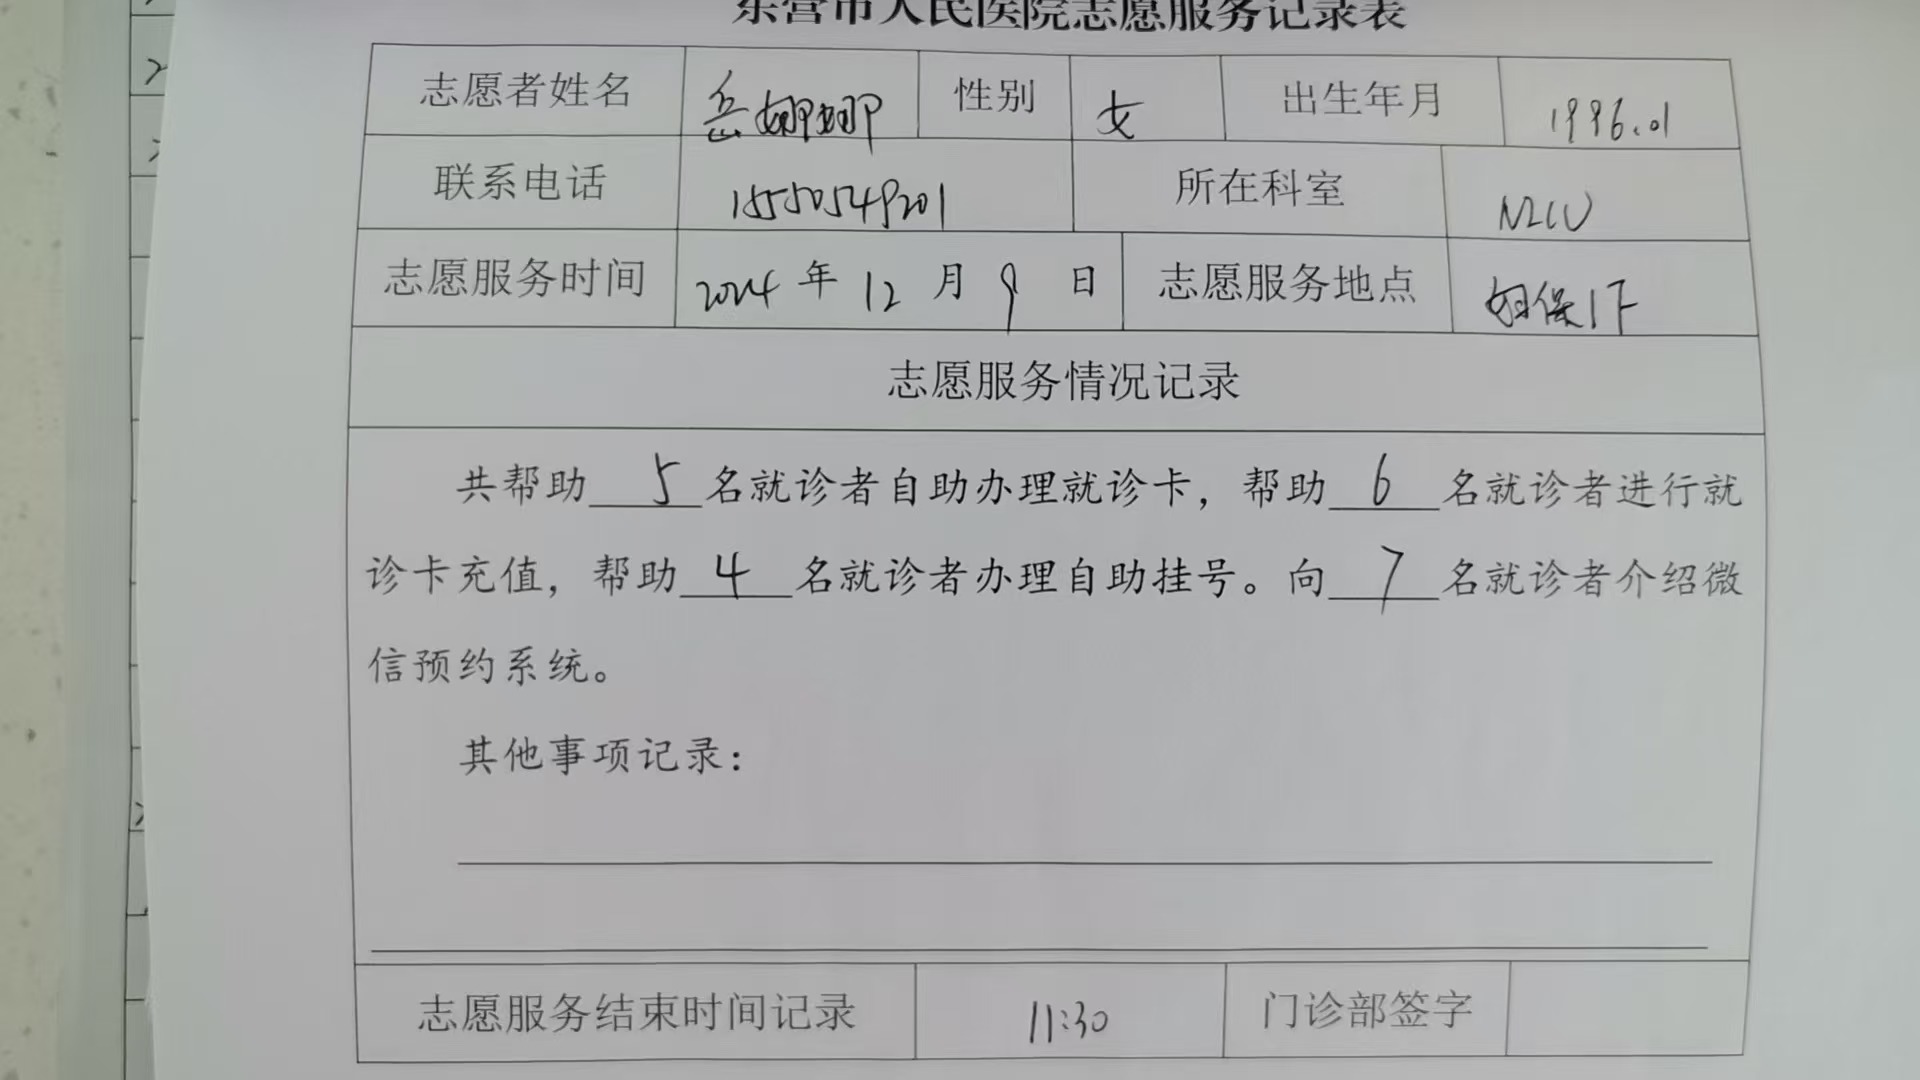 东营市人民医院志愿服务记录表
志愿者姓名 岳娜娜 性别 女 出生年月 1996.01
联系电话 15550549201 所在科室 NICU
志愿服务时间 2024 年 12 月 9 日 志愿服务地点 妇保1F
志愿服务情况记录
共帮助 5 名就诊者自助办理就诊卡，帮助 6 名就诊者进行就
诊卡充值，帮助 4 名就诊者办理自助挂号。向 7 名就诊者介绍微
信预约系统。
其他事项记录：
志愿服务结束时间记录 11:30 门诊部签字